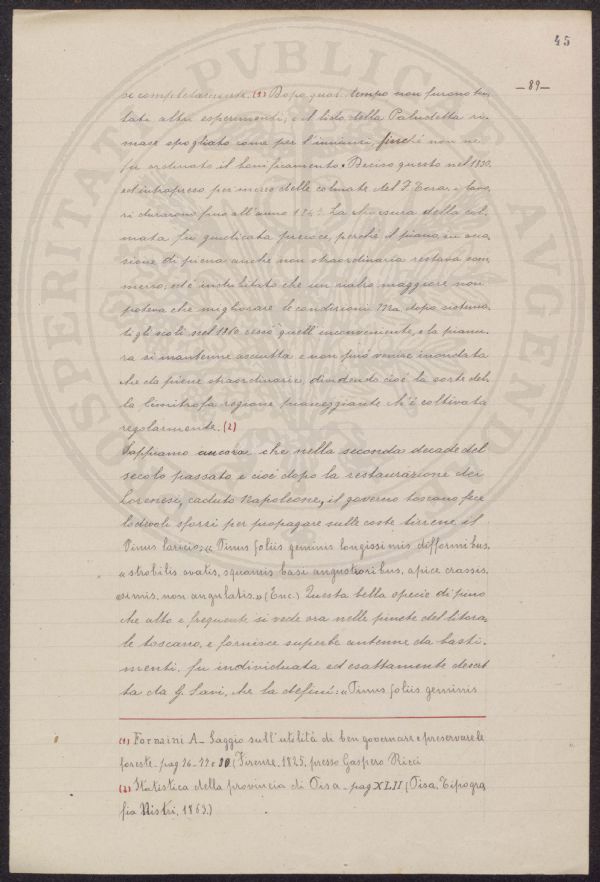 45
—89—
se completamente. (1) Dopo quel tempo non furono ten
tati altri esperimenti, e il lido della Paludetta ri
mase spogliato come per l'innanzi, finché non ne
fu ordinato il bonificamento. Deciso questo nel 1830.
ed intrapreso per mezzo delle colmate del F. Tecora, i lavo
ri durarono fino all'anno 184 La chiusura della col
mata fu giudicata precoce, perché il piano in occa
sione di piena anche non straordinaria restava som
merso; ed è indubitato che un rialzo maggiore non
poteva che migliorare le condizioni. Ma, dopo sistema
ti gli scoli, nel 1860 cessò quell'inconveniente, e la pianu
ra si mantenne asciutta e non può venire inondata
che da piene straordinarie, dividendo cioè la sorte del
la limitrofa regione pianeggiante ch'è coltivata
regolarmente. (2)
Sappiamo ancora che nella seconda decade del
secolo passato e cioè dopo la restaurazione dei
Lorenesi, caduto Napoleone, il governo toscano fece
lodevoli sforzi per propagare sulle coste tirrene il
Pinus laricio: « Pinus foliis geminis longissimis difformibus,
« strobilis ovatis, squamis basi angustioribus, apice crassis
simis, non angulatis.» (Enc.) Questa bella specie di pino
che alto e frequente si vede ora nelle pinete del litora
le toscano, e fornisce superbe antenne da basti-
menti, fu individuata ed esattamente descrit
ta da G. Savi, che la definì: « Pinus foliis geminis
(1) Fornaini A_ Saggio sull'utilità di ben governare e preservare le
foreste_ pag 26-29 e 30 (Firenze, 1825, presso Gaspero Ricci
(2) Statistica della provincia di Pisa_ pag XLII (Pisa, Tipogra
fia Nistri, 1863.)
PVBLICAE
AVGENDAE
PROSPERITATI